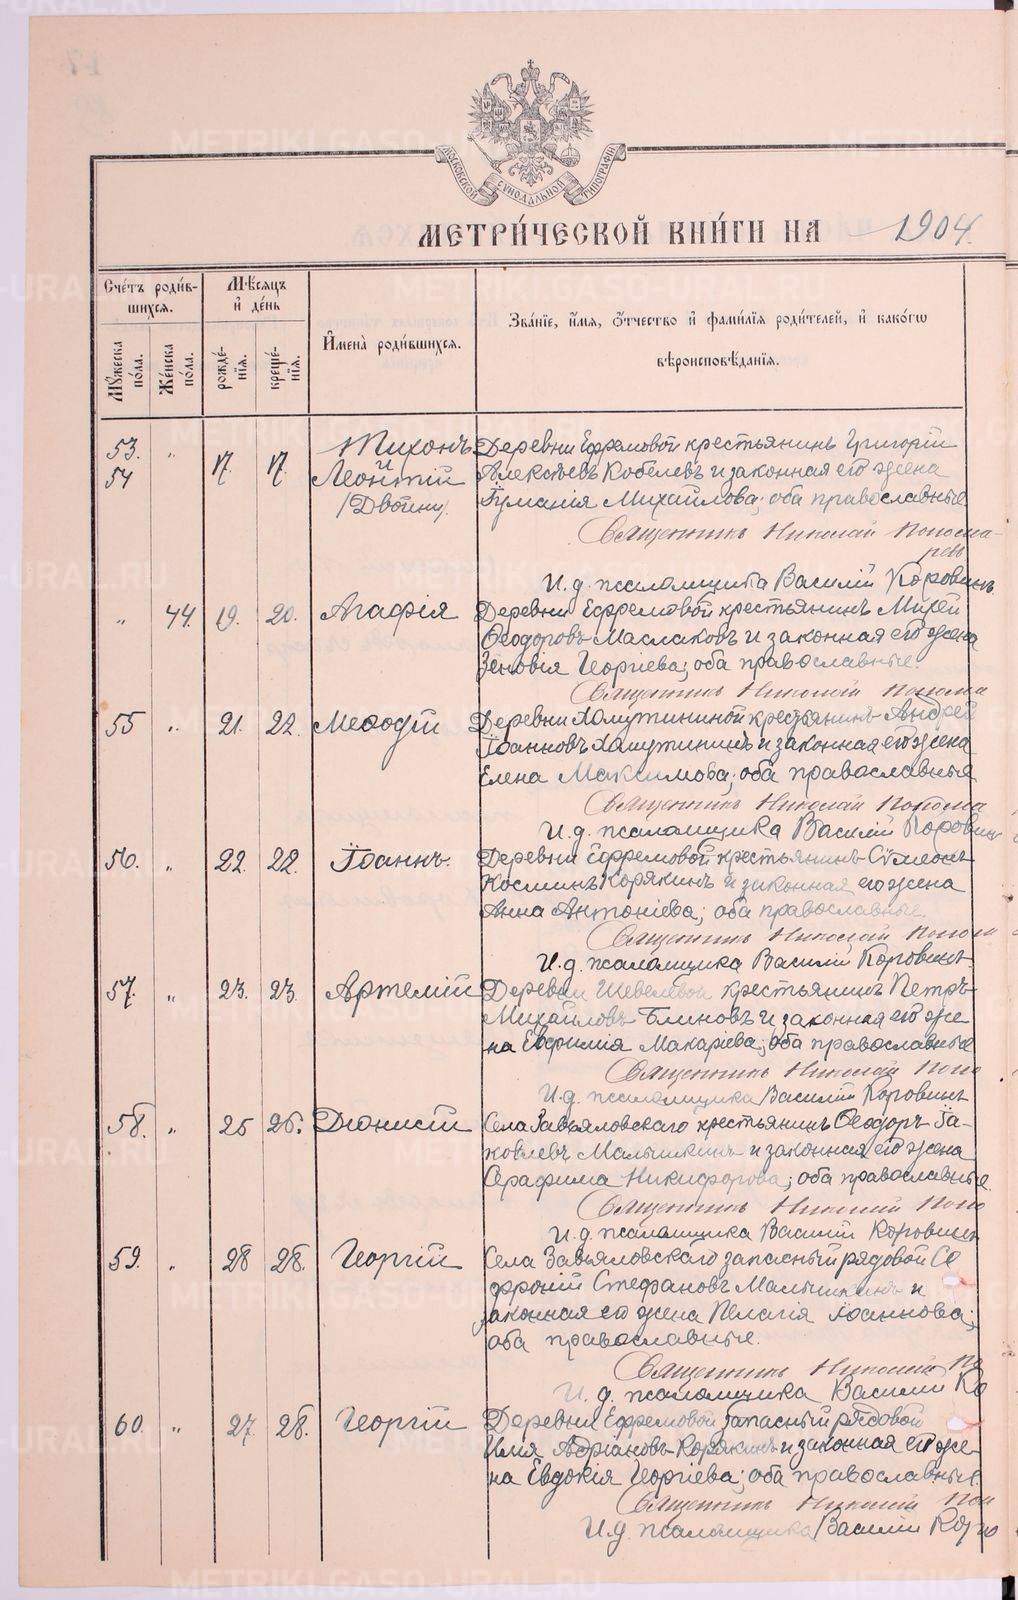 МОСКОВСКОЙ СѴНОДАЛЬНОЙ ТИПОГРАФІИ
МЕТРИ́ЧЕСКОЙ КНИ́ГИ НА 1904.
Сче́тъ роди́в-
шихся.
Мѣ́сяцъ
и҆ де́нь
И҆мена̀ роди́вшихся.
Зва́нїе, и҆́мя, ѻ҆́тчество и҆ фами́лїя роди́телей, и҆ како́гѡ
вѣроисповѣ́данїя.
Мꙋ́жеска по́ла.
Же́нска по́ла.
рожде́-
нїя.
креще́-
нїя.
53. " 17. 17. Тихонъ Деревни Ефремовой крестьянинъ Григорій
54 и Леонтій Алексѣевъ Кобелевъ и законная его жена
/Двойни/. Гуманія Михайлова; оба православные
Священникъ Николай Понома-
ревъ
И. д. псаломщика Василій Коровинъ
" 44. 19. 20. Агафія Деревни Ефремовой крестьянинъ Михей
Ѳеодоровъ Маслаковъ и законная его жена
Зеновія Георгіева; оба православные.
Священникъ Николай Понома
55 " 21. 22. Меѳодій Деревни Халутининой крестьянинъ Андрей
Іоанновъ Халутининъ и законная его жена
Елена Максимова; оба православные
Священникъ Николай Понома
И. д. псаломщика Василій Коровин
56. " 22. 22. Іоаннъ. Деревни Ефремовой крестьянинъ Сѵмеонъ
Косминъ Корякинъ и законная его жена
Анна Антоніева; оба православные.
Священникъ Николай Поном
И. д. псаломщика Василій Коровинъ.
57. " 23. 23. Артемій Деревни Шевелевой крестьянинъ Петръ
Михайловъ Блиновъ и законная его же
на Евфимія Макаріева; оба православные
Священникъ Николай Поно
И. д. псаломщика Василій Коровинъ
58. " 25 26. Діонисій Села Завьяловскаго крестьянинъ Ѳеодоръ Іа-
ковлевъ Малышкинъ и законная его жена
Серафима Никифорова; оба православные.
Священникъ Николай Поно
И. д. псаломщика Василій Коровинъ
59. " 28 28. Георгій Села Завьяловскаго запасный рядовой Со
фроній Стефановъ Малышкинъ и
законная его жена Пелагія Іоаннова;
оба православные.
Священникъ Николай По
И. д. псаломщика Василій Ко
60. " 27 28. Георгій Деревни Ефремовой запасный рядовой
Илія Адріановъ Корякинъ и законная его же-
на Евдокія Георгіева; оба православные.
Священникъ Николай Пон
И. д. псаломщика Василій Коро
METRIKI.GASO-URAL.RU